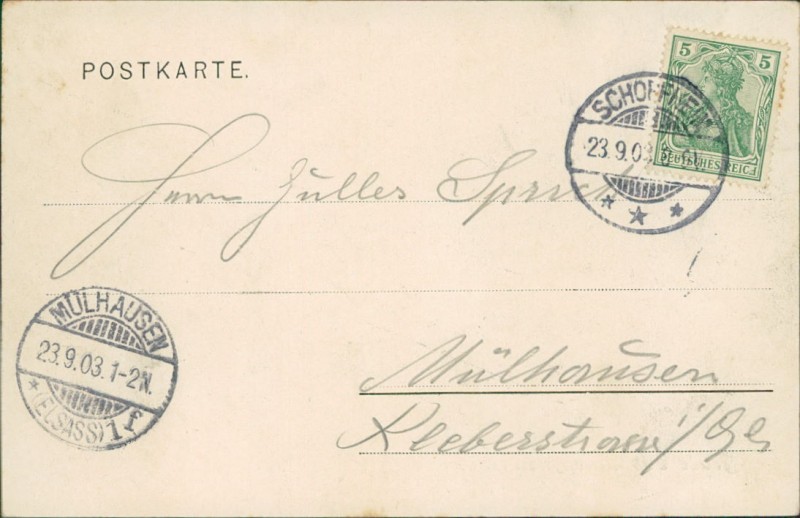 POSTKARTE.
5 5
DEUTSCHES REICH
SCHOPFHEIM
23.9.03.
Herrn Zuller
MÜLHAUSEN
23.9.03.1-2N.
(ELSASS) 1f
Mülhausen
Kleberstrasse